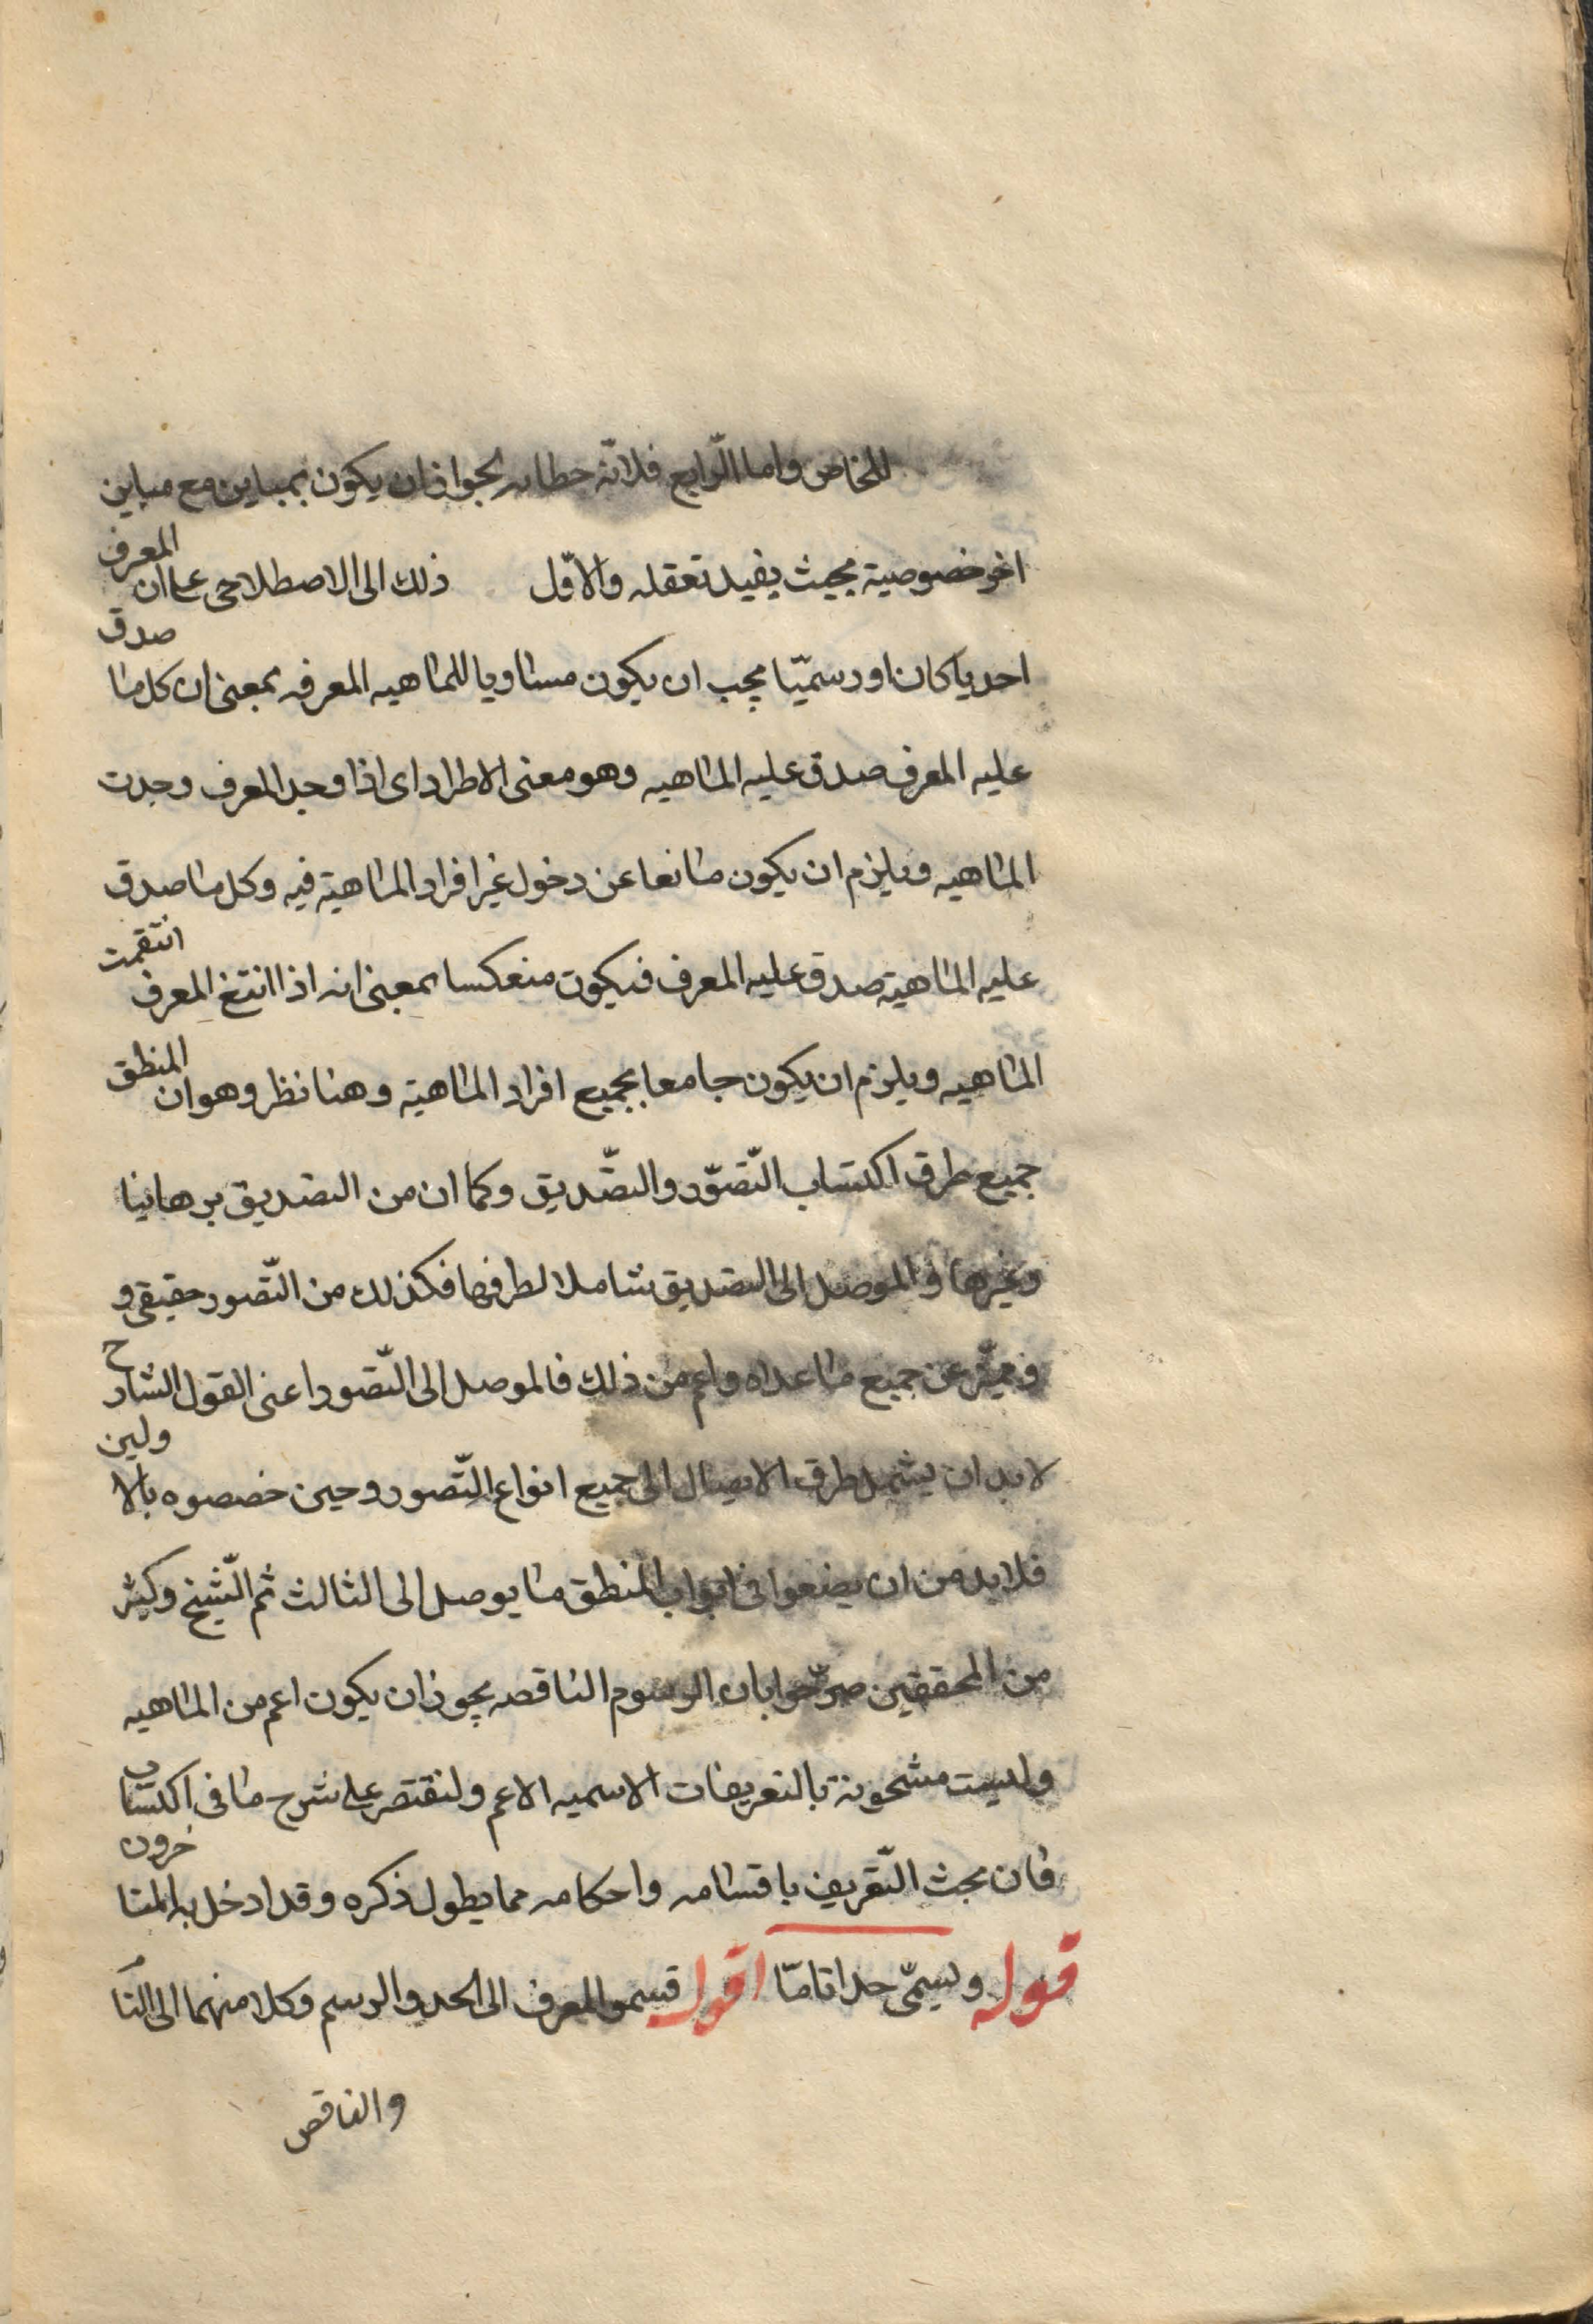 للخاص واما الرّابع فلانّه خطابه لجواز ان يكون بمباين مع مباين
اخر خصوصية بحيث يفيد تعقله والاوّل ذلك الى الاصطلاحى على ان المعرف
احديا كان او رسميّا يجب ان يكون مساويا للماهيه المعرفه بمعنى ان كل ما صدق
عليه المعرف صدق عليه الماهيه وهو معنى الاطراد اى اذا وجد المعرف وجدت
الماهيه ويلزم ان يكون مانعا عن دخول غير افراد الماهية فيه وكل ما صدق
عليه الماهية صدق عليه المعرف فيكون منعكسا بمعنى انه اذا انتفى المعرف انتقمت
الماهيه ويلزم ان يكون جامعا بجميع افراد الماهية وهنا نظر وهو ان المنطق
جميع طرق اكتساب التّصوّر والتصّديق وكما ان من التصديق برهانيا
وغيرها والموصل الى التصديق شاملا لطرفها فكذلك من التّصور حقيقى و
وميّز عن جميع ما عداه واعم من ذلك فالموصل الى التّصور اعنى القول الشارح
لابد ان يشمل طرق الايصال الى جميع انواع التّصور وحين خصصوه بالاولين
فلابد من ان يضعوا فى ابواب المنطق ما يوصل الى الثالث ثم الشّيخ وكثير
من المحققين صرّحوا بان الرسوم الناقصه يجوز ان يكون اعم من الماهيه
وليست مشحونة بالتعريفات الاسميه الاعم ولنقتصر على شرح ما فى اكتساب
فان بحث التّعريف باقسامه واحكامه مما يطول ذكره وقد ادخل به المتاخرون
قوله ويسمّى حدا تامّا اقول قسمو المعرف الى الحد والرسم وكلا منهما الى التام
والناقص